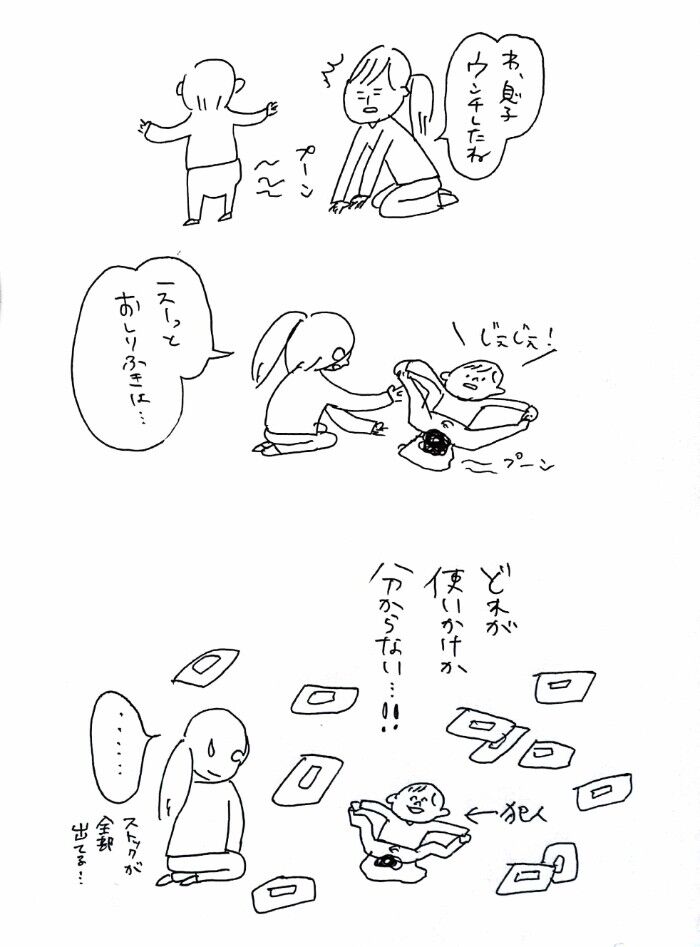 わ、息子
ウンチしたね
プーン
えーっと
おしりふきは…
じぇじぇ!
プーン
どれが
使いかけか
分からない…!!
……
ストックが
全部
出てる…
←犯人